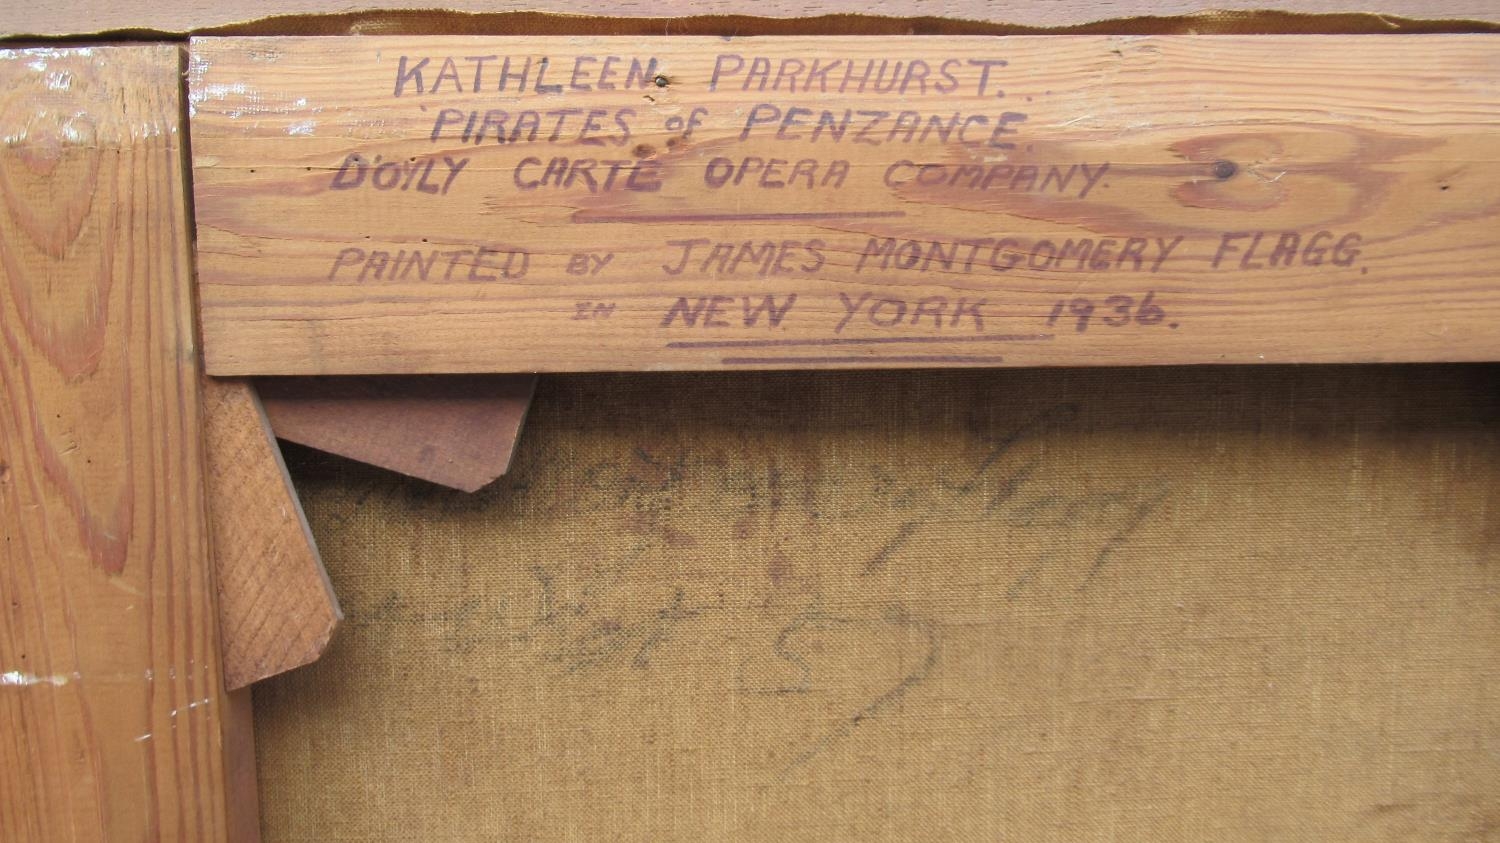 KATHLEEN PARKHURST...
'PIRATES of PENZANCE.
D'OYLY CARTE OPERA COMPANY.
PAINTED BY JAMES MONTGOMERY FLAGG.
IN NEW YORK 1936.